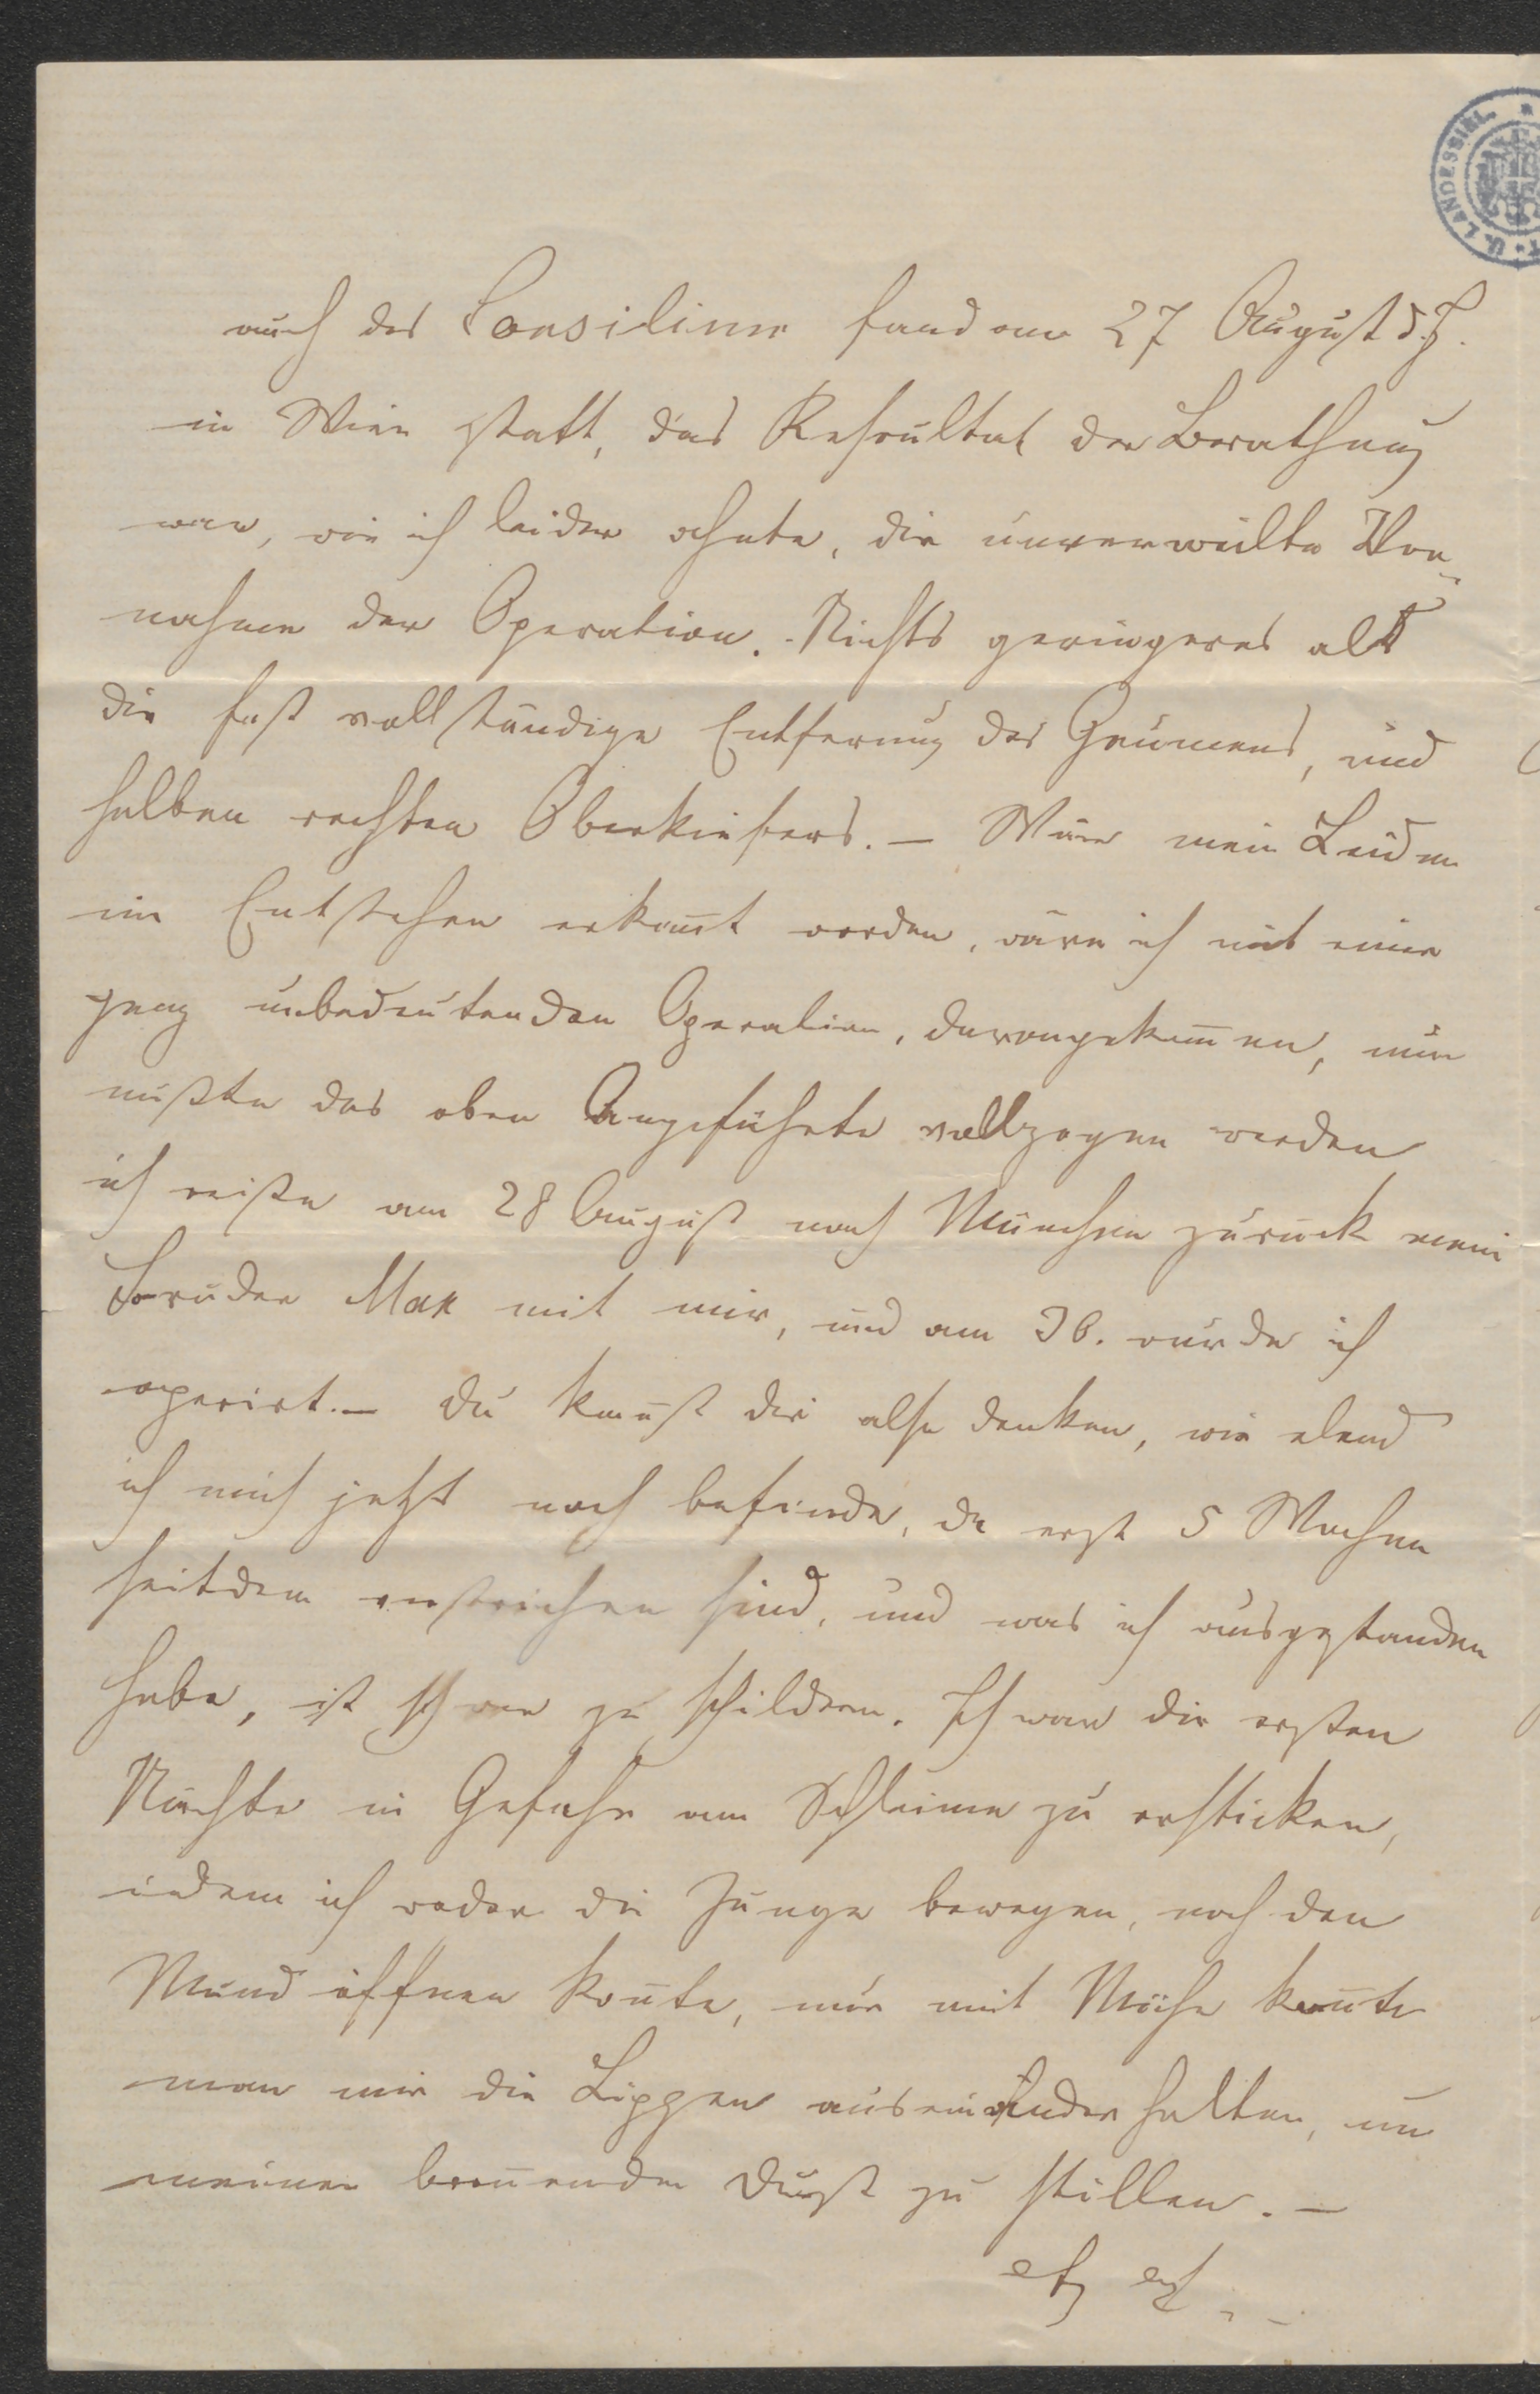 LANDESBIBL.
auch das Consilium fand am 27 August d. J.
in Wien statt, das Resoultat der Berathung
war, wie ich leider ahnte, die unverweilte Vor-
nahme der Operation. Nichts geringeres als
die fast vollständige Entfernung des Gaumens, und
halben rechten Oberkiefers. — Wäre mein Leiden
im Entstehen erkan̅t worden, wäre ich mit einer
ganz unbedeutenden Operation, davongekom̅en, nun
mußte das oben Angeführte vollzogen werden
ich reiste am 28 August nach München zurück mein
Bruder Max mit mir, und am 30. wurde ich
operirt. — Du kan̅st dir also denken, wie elend
ich mich jetzt noch befinde, da erst 5 Wochen
seitdem verstrichen sind, und was ich ausgestanden
habe, ist schwer zu schildern. Ich war die ersten
Nächte in Gefahr am Schleime zu ersticken,
indem ich weder die Zunge bewegen, noch den
Mund öffnen kon̅te, nur mit Mühe kon̅te
man mir die Lippen auseinander halten, um
meinen bren̅enden Durst zu stillen. —
etz etz